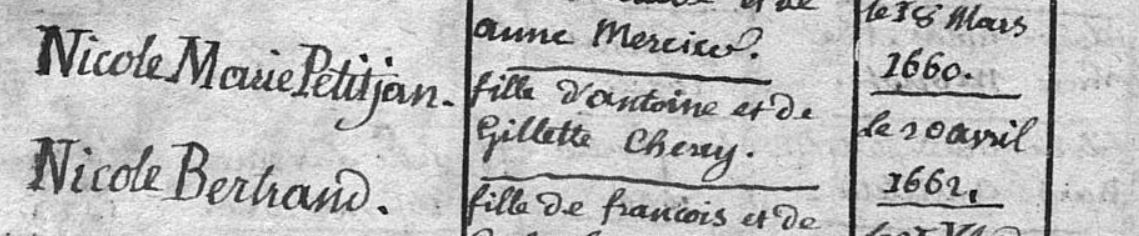 et de
anne Mercier.
le 18 Mars
1660.
Nicole Marie Petitjan.
fille d'antoine et de
Gillette Cherey.
le 20 avril
1662.
Nicole Bertrand.
fille de francois et de